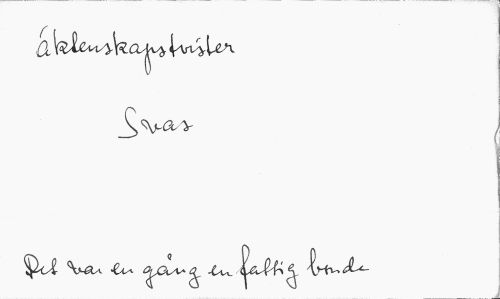 äktenskapstvister
Svas
Det var en gång en fattig bonde